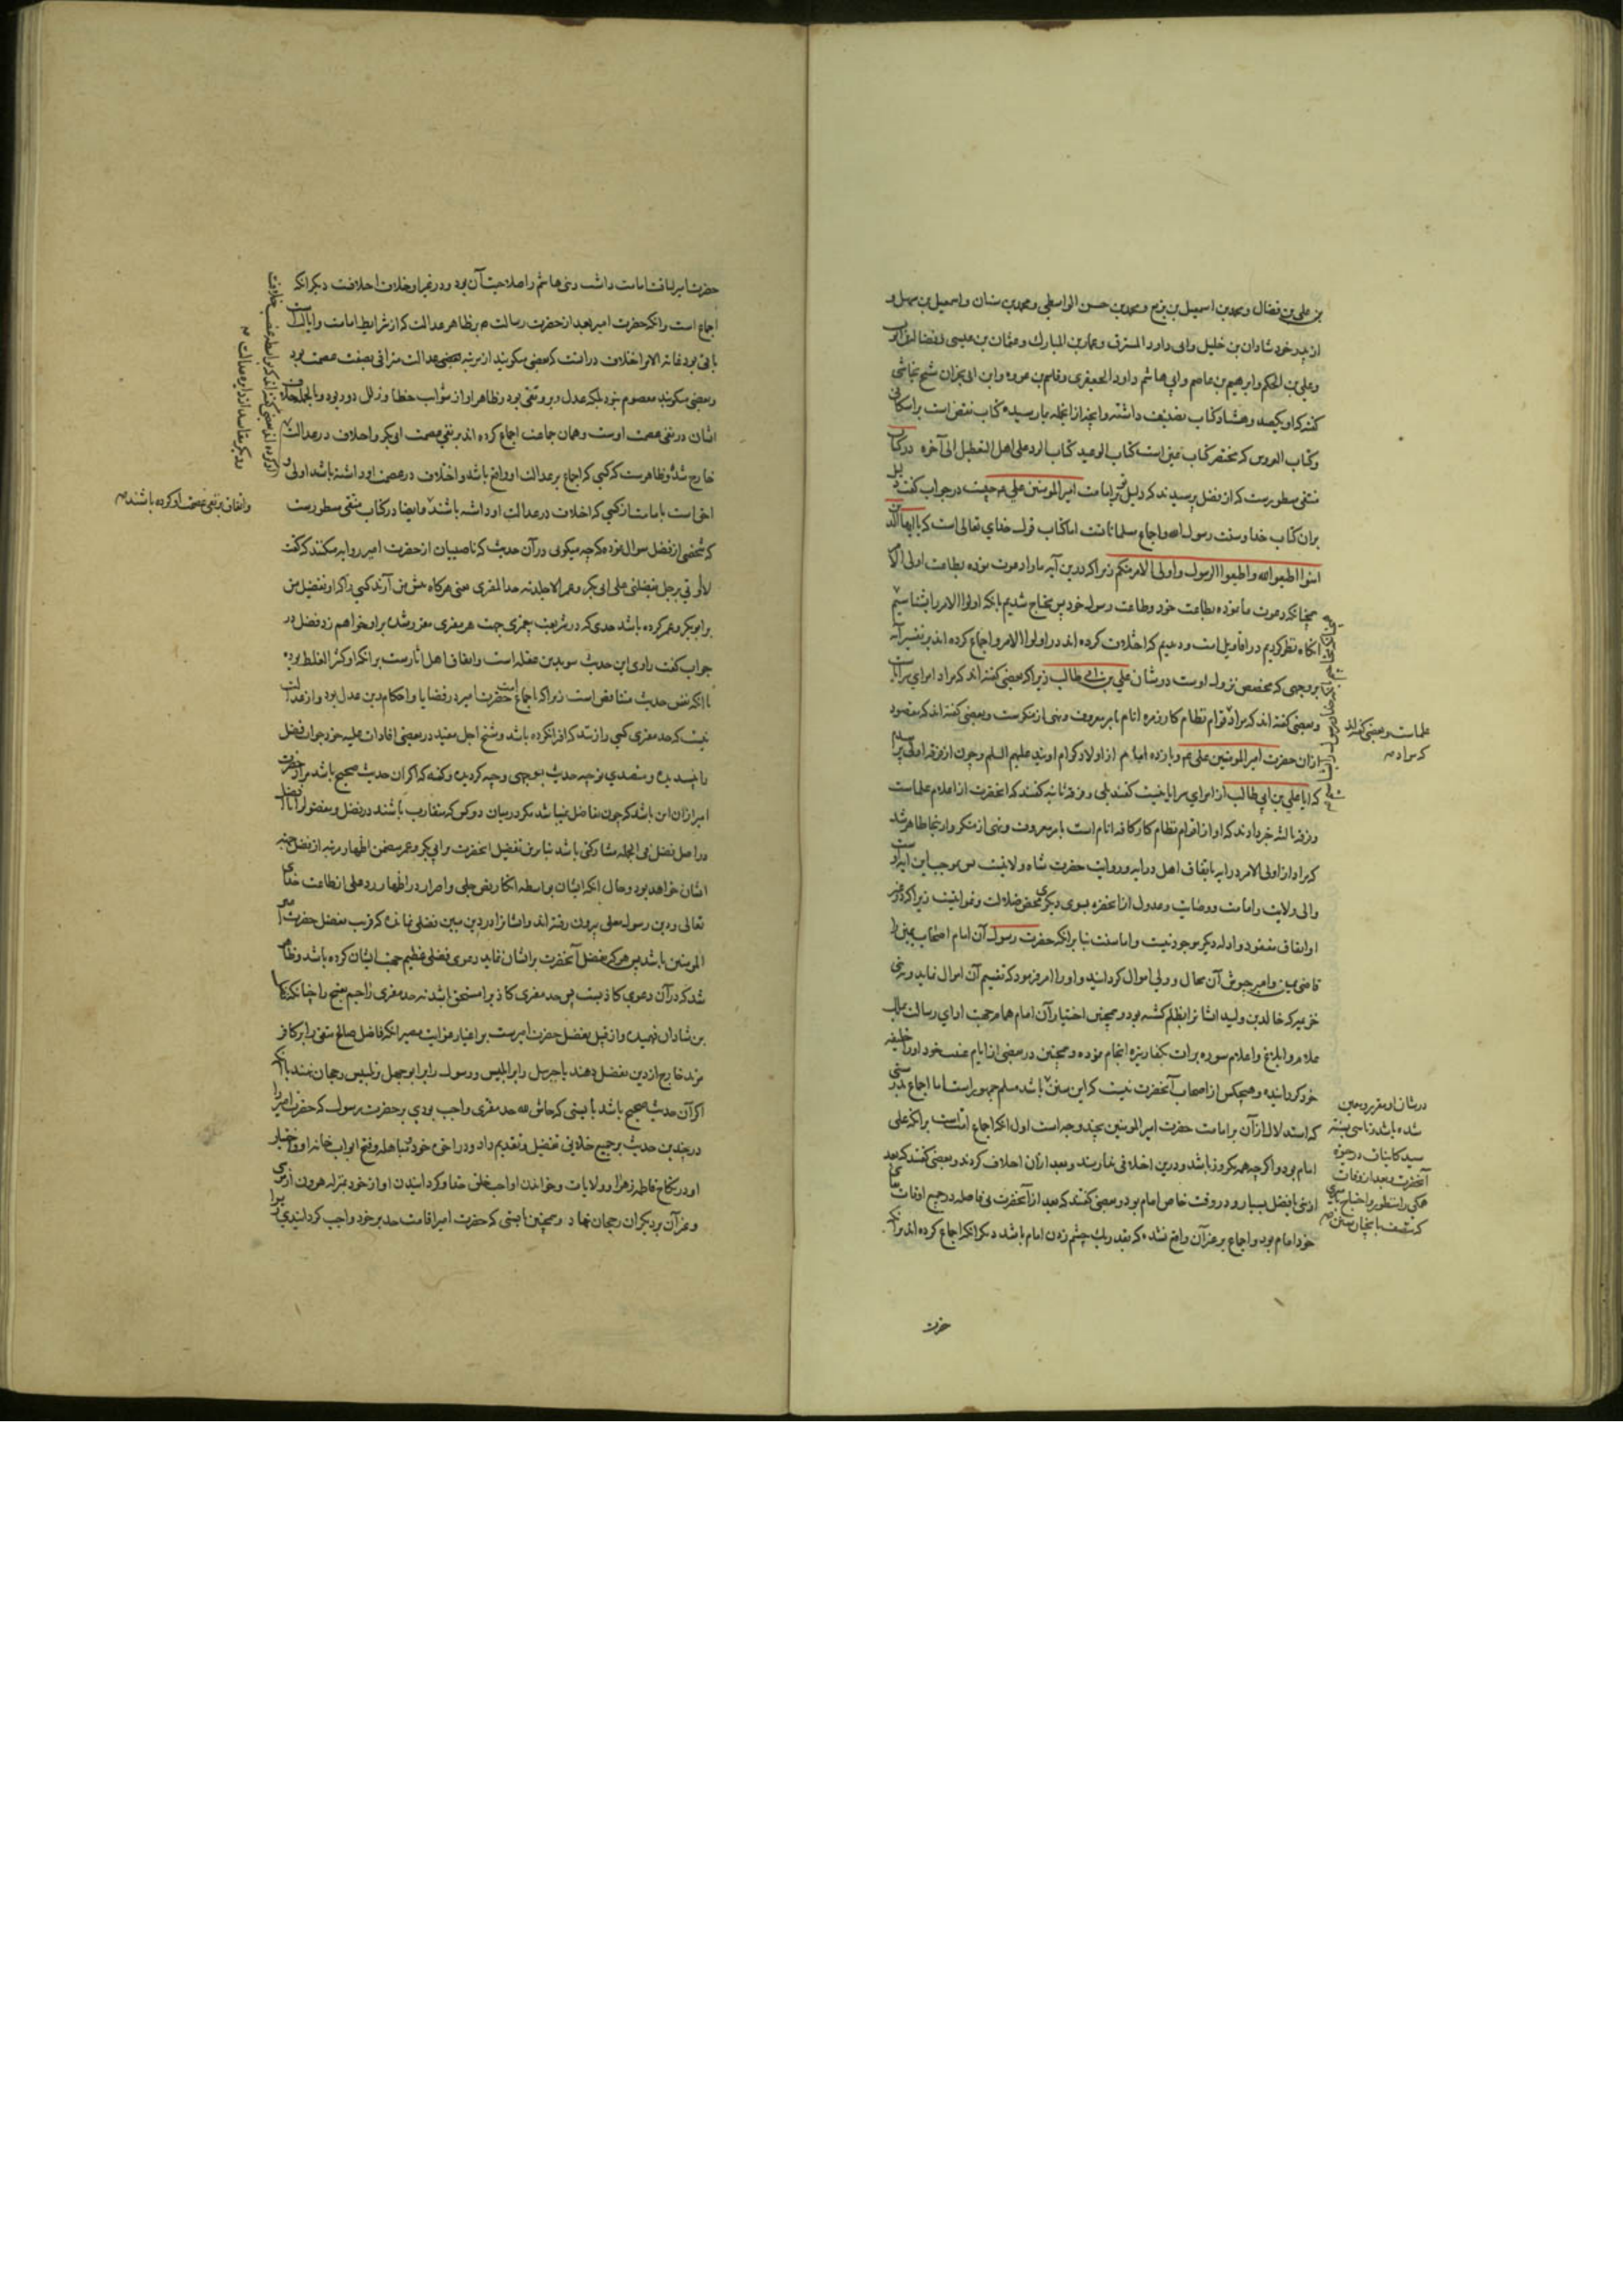 بن علی بن فضال و محمد بن اسمعیل بن بزیع و محمد بن حسن الواسطی و محمد بن سنان و اسمعیل بن سهل و
از پدر خود شاذان بن خلیل و ابی داود المسترق و عمار بن المبارک و عثمان بن عیسی و فضالة بن ایوب
و علی بن الحکم و ابرهیم بن عاصم و ابی هاشم داود الجعفری و قاسم بن عروه و ابن ابی نجران شیخ نجاشی
گفته که او یکصد و هشتاد کتاب تصنیف داشته و آنچه از آنجمله بما رسیده کتاب نقض است بر اسکافی
و کتاب العروس که مختصر کتاب عین است کتاب الوعید کتاب الرد علی اهل التعطیل الی آخره در کتاب
منتقی مسطورست که از فضل پرسیدند که دلیل تو بر امامت امیر المومنین علی م چیست در جواب گفت دلیل
بران کتاب خدا و سنت رسول الله و اجماع مسلمانانست اما کتاب قول خدای تعالی است که یا ایها الذین
امنوا اطیعوا الله و اطیعوا الرسول و اولی الامر منکم زیرا که درین آیه ما را دعوت نموده بطاعت اولی الامر
همچنانکه دعوت ما نموده بطاعت خود و طاعت رسول خود پس محتاج شدیم بآنکه اولوا الامر را بشناسیم
آنگاه نظر کردیم در اقاویل امت و دیدیم که اختلاف کرده اند در اولوا الامر و اجماع کرده اند بر تفسیر آیه
بروجهی که مخصص نزول اوست در شان علی بن ابی طالب زیرا که بعضی گفته اند که مراد امرای سرایاست
و بعضی گفته اند که مراد قوام نظام کار زمره انام بامر بمعروف و نهی از منکرست و بعضی گفته اند که مقصود
علماست و بعضی گفته اند
که مراد
ازان حضرت امیر المومنین علی م و یازده امام از اولاد کرام اویند علیهم السلم و چون از فرقه اولی پرسیدیم
که ایا علی بن ابی طالب از امرای سرایا نیست گفتند بلی و فرقه ثانیه گفتند که آنحضرت از اعلام علماست
و فرقه ثالثه خبر دادند که او از اقوام نظام کار کافه انام است بامر بمعروف و نهی از منکر و ازینجا ظاهر شد
که مراد از اولی الامر در آیه باتفاق اهل درایه و روایت حضرت شاه ولایتست پس بموجب این آیه اوست
والی ولایت و امامت و وصایت و عدول از آنحضرت بسوی دیگری محض ضلالت و غوایتست زیرا که در غیر
او اتفاق مفقود و ادله دیگر موجود نیست و اما سنت بنا برانکه حضرت رسول آن امام اصحاب یمین را
قاضی یمن و امیر جیوش آن محال و ولی اموال گردانید و او را امر فرمود که تقسیم آن اموال نماید و بر بنی
خزیمه که خالد بن ولید ایشانرا بظلم کشته بود و همچنین اختیار آن امام همام جهت ادای رسالت ملک
علام و ابلاغ و اعلام سوره برات بکفار نیزه انجام نموده و همچنین در بعضی از ایام غیبت خود او را خلیفه
خود گردانیده و هیچکس از اصحاب آنحضرت نیست که این سنن باشد مسلم جمهور است اما اجماع بدرستی
در شان او مقرر و معین
شده باشد
سید کاینات در حیوة
آنحضرت و بعد از وفات
که استدلال از آن بر امامت حضرت امیر المومنین بچند وجه است اول آنکه اجماع امتست برانکه علی
امام بود و اگرچه همه یکروز باشد و درین اختلافی ندارند و بعد ازان اختلاف کردند و بعضی گفتند که بعد
از نبی بافضل بسیار و در وقت خاص امام بود و بعضی گفتند که بعد از آنحضرت بی فاصله در جمیع اوقات
خود امام بود و اجماع بر غیر آن واقع نشده که بقدر یک چشم زدن امام باشد دیگر آنکه اجماع کرده اند برانکه
حضرت
حضرت امیر لیاقت امامت داشت و بنی هاشم را صلاحیت آن بود و در غیر او خلاف اختلافست دیگر آنکه
اجماع است برانکه حضرت امیر بعد از حضرت رسالت م بر ظاهر عدالت که از شرایط امامت و ایالتست
باقی بود غایة الامر اختلاف درانست که بعضی میگویند از مرتبه عدالت مترقی بصفت عصمت بود
و بعضی میگویند معصوم نبود بلکه عدل و برو تقی بود و ظاهر او از شوایب خطا و زلل دور بود و بالجمله خلاف
ایشان در نفی عصمت اوست و همان جماعت اجماع کرده اند بر نفی عصمت ابوبکر و اختلاف در عدالت
خارج شد و ظاهرست که کسی که اجماع بر عدالت او واقع باشد و اختلاف در عصمت او داشته باشد اولی و
احق است بامامت از کسی که اختلاف در عدالت او داشته باشند و ایضا در کتاب منتقی مسطورست
و اتفاق بر نفی عصمت او کرده باشند
که شخصی از فضل سوال نموده که چه میگوئی در آن حدیث که ناصبیان از حضرت امیر روایه میکنند که گفت
لا اوتی برجل یفضلنی علی ابی بکر و عمر الا جلدته حد المفتری یعنی هرگاه پیش من آرند کسی را که او تفضیل من
بر ابوبکر و عمر کرده باشد حدی که در شریعت جهت هر مفتری مقرر شده بر او خواهم زد فضل در
جواب گفت راوی این حدیث سوید بن غفله است و اتفاق اهل آثارست برانکه او کثیر الغلط بوده
با آنکه نفس حدیث متناقض است زیرا که باجماع امت حضرت امیر در قضایا و احکام دین عدل بود و از عدالت
نیست که حد مفتری کسی را زند که افترا نکرده باشد و شیخ اجل مفید در بعضی افادات علیه خود جواب فضل
را پسندیده و متصدی توجیه حدیث بوجهی وجیه گردیده و گفته که اگر آن حدیث صحیح باشد مراد حضرت
امیر ازان این باشد که چون تفاضل نمیباشد مگر در میان دو کس که متقارب باشند در فضل و مفضول را با افضل
در اصل فضل فی الجمله مشارکتی باشد بنا برین تفضیل آنحضرت بر ابی بکر و عمر متضمن اظهار مرتبه از فضل جهت
ایشان خواهد بود و حال آنکه ایشان بواسطه انکار نص جلی و اصرار در اظهار رد علی از طاعت خدای
تعالی و دین رسول معلی بیرون رفته اند و ایشانرا در دین مبین فضلی نمانده که قریب بفضل حضرت امیر
المومنین باشد پس هر که تفضیل آنحضرت بر ایشان نماید دعوی فضلی عظیم جهت ایشان کرده باشد و ظاهر
شد که در آن دعوی کاذبست پس حد مفتری کاذب را مستحق باشد نه حد مفتری زاجم قبیح را چنانکه
بن شاذان فهمیده و از قبیل تفضیل حضرت امیرست بر اغیار
مرتد خارج از دین تفضیل دهند یا جبرئیل را بر ابلیس و رسول را بر ابو جهل رجحان نهند با آنکه
اگر آن حدیث صحیح باشد بایستی که حاش لله حد مفتری واجب بودی بر حضرت رسول که حضرت امیر را
در چندین حدیث بر جمیع خلایق تفضیل و تقدیم داد و در اخوت خود و مباهله و فتح ابواب خانه او و اختیار
او در نکاح فاطمه زهرا و ولایات و خواندن او احب خلق خدا و گردانیدن او از خود بمنزله هرون از موسی
و غیر آن بر دیگران رجحان نهاد و همچنین بایستی که حضرت امیر اقامت حد بر خود واجب گردانیدی زیرا